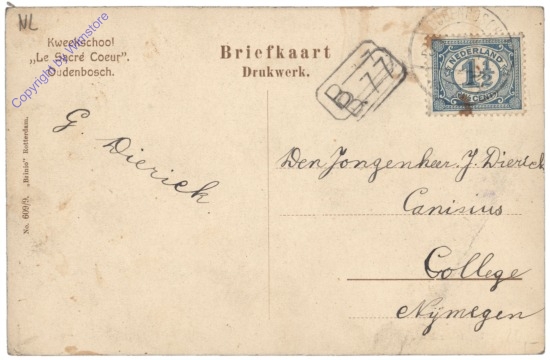 NL
Kweekschool
„Le Sacré Coeur".
Oudenbosch.
Copyright by Wikinstore
Briefkaart
Drukwerk.
NEDERLAND
1½
CENT
G. Dierick
Den Jongenheer. J. Dierick
Canisius
College
Nÿmegen
No. 6099. „Brinio" Rotterdam.